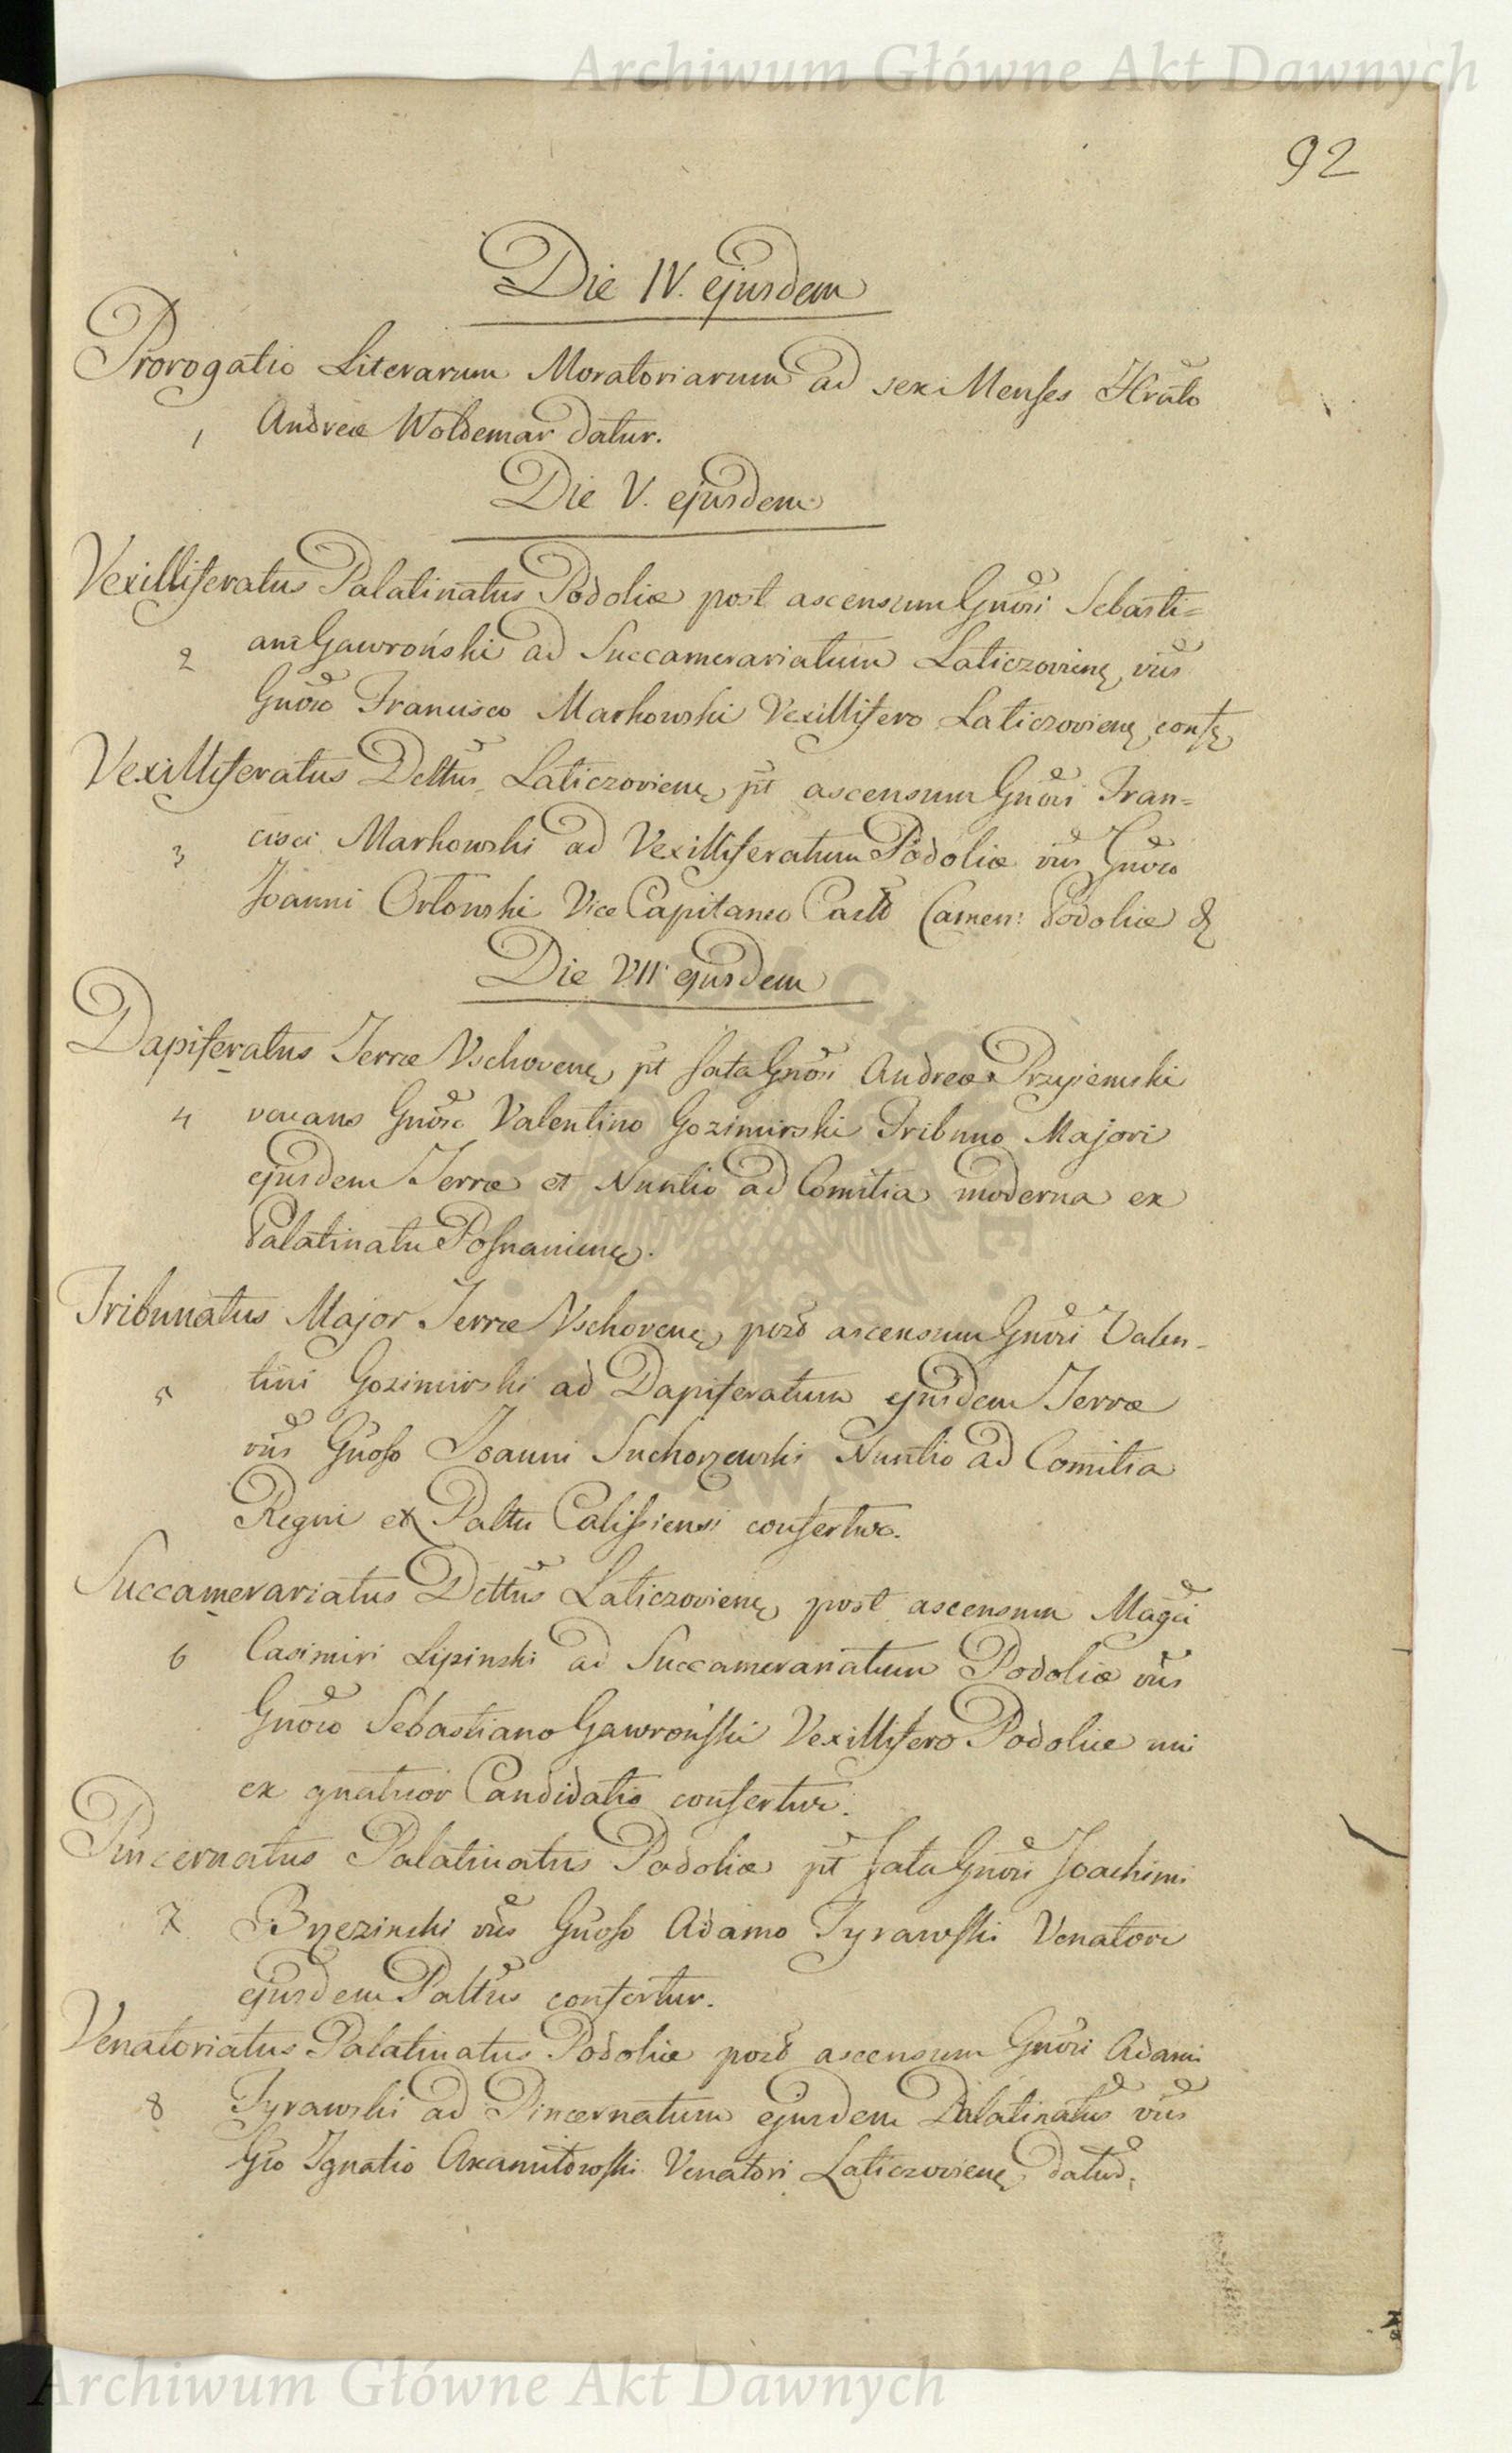 Archiwum Główne Akt Dawnych
92
Die IV. ejusdem
Prorogatio Literarum Moratoriarum ad sex Menses
1 Andreæ Woldemar datur.
Die V. ejusdem
Vexilliferatus Palatinatus Podoliæ post ascensum Gnosi Sebasti=
2 ani Gawroński ad Succamerariatum Laticzovien, vũs
Gnoso Francisco Markowski Vexillifero Laticzovien, conf
Vexilliferatus Dcttũs Laticzovien, pt ascensum Gnosi Fran=
3 cisci Markowski ad Vexilliferatum Podoliæ vũs Gnoso
Joanni Orłowski Vice Capitaneo Cast Camen: Podoliæ &
Die VII ejusdem
Dapiferatus Terræ Vschoven, pt fata Gnosi Andreæ Przyiemski
4 vacans Gnoso Valentino Gozimirski Tribuno Majori
ejusdem Terræ et Nuntio ad Comitia moderna ex
Palatinatu Posnanien.
Tribunatus Major Terræ Vschoven, post ascensum Gnosi Valen-
5 tini Gozimirski ad Dapiferatum ejusdem Terræ
vũs Gnoso Joanni Suchorzewski Nuntio ad Comitia
Regni ex Palttu Calissiensi confertur.
Succamerariatus Dcttũs Laticzovien, post ascensum Magci
6 Casimiri Lipinski ad Succamerariatum Podoliæ vũs
Gnoso Sebastiano Gawroński Vexillifero Podoliæ uni
ex quatuor Candidatis confertur.
Pincernatus Palatinatus Podoliæ pt fata Gnosi Joachimi
7 Brzezinski vũs Gnoso Adamo Tyrawski Venatori
ejusdem Palttũs confertur.
Venatoriatus Palatinatus Podoliæ post ascensum Gnosi Adami
8 Tyrawski ad Pincernatum ejusdem Palatinatũs vũs
Gso Ignatio Axamitowski Venatori Laticzovien, datur.
Archiwum Główne Akt Dawnych